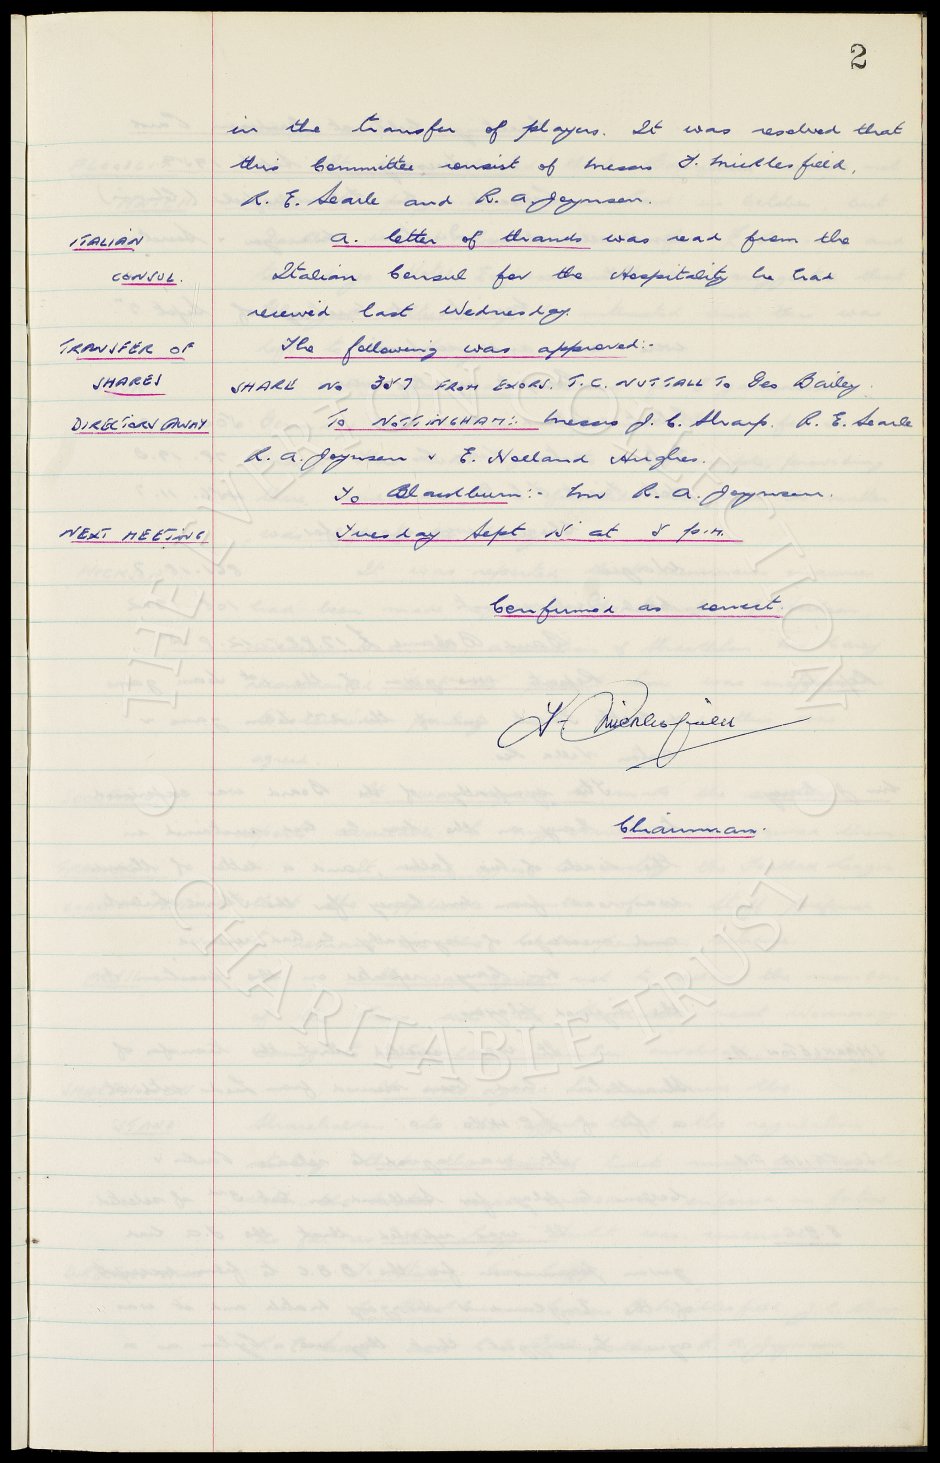 2
in the transfer of players. It was resolved that
this Committee consist of Messrs T. Micklesfield,
R. E. Searle and R. A. Joynson.
ITALIAN A letter of thanks was read from the
CONSUL. Italian Consul for the Hospitality he had
received last Wednesday
TRANSFER OF The following was approved:-
SHARES SHARE No 387 FROM EXORS. T.C. NUTTALL To Geo Bailey.
DIRECTORS AWAY To NOTTINGHAM:- Messrs J. C. Sharp. R. E. Searle
R. A. Joynson & E. Holland Hughes.
To Blackburn:- Mr R. A. Joynson.
NEXT MEETING Tuesday Sept 18 at 8 p.m.
Confirmed as correct.
Chairman.
THE EVERTON COLLECTION
CHARITABLE TRUST